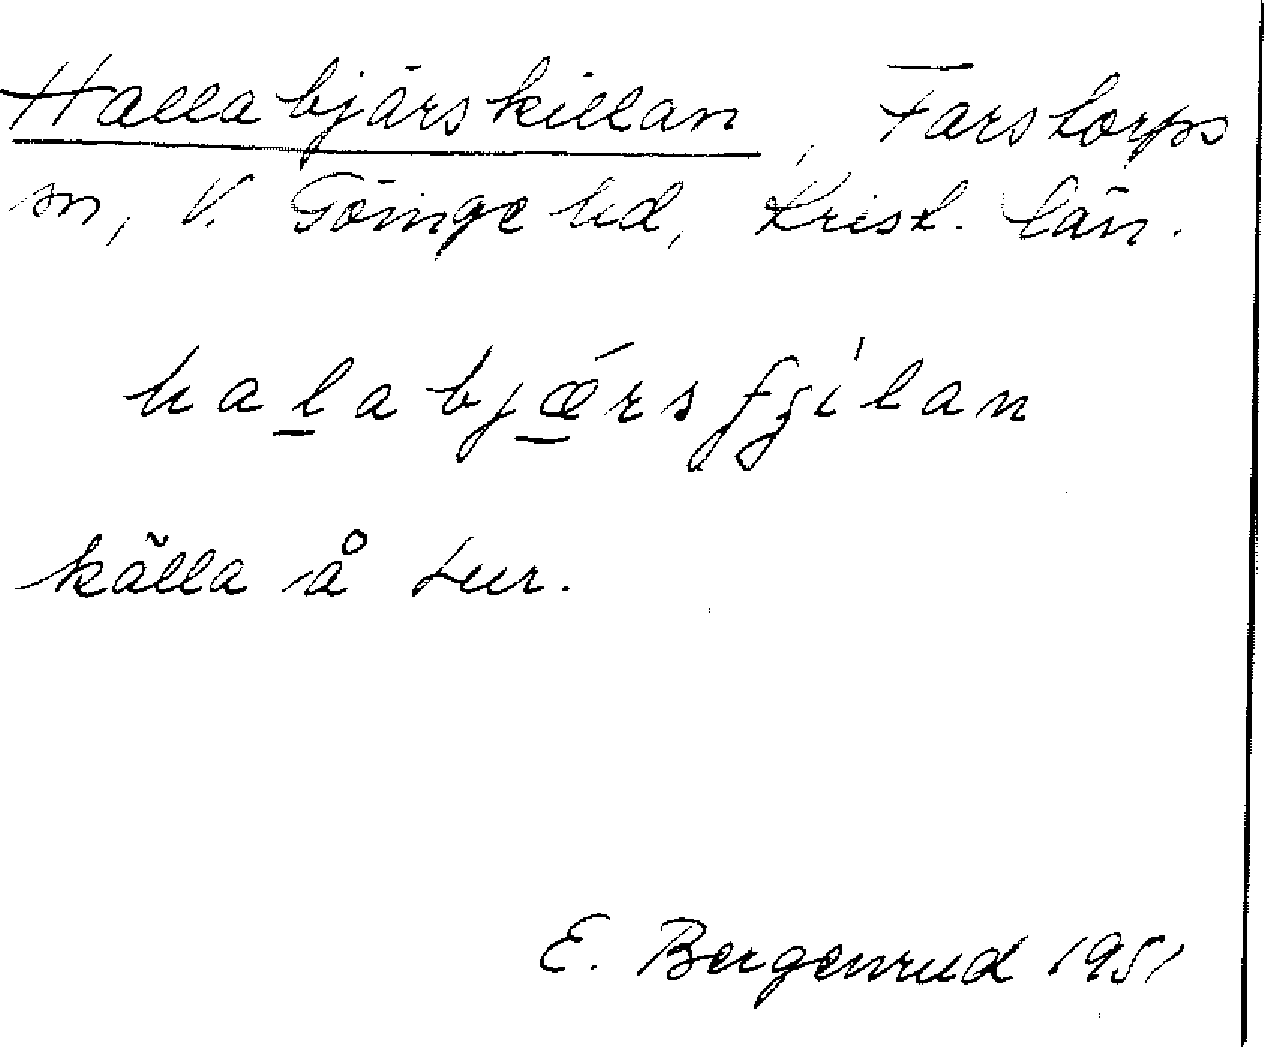 Hallabjärskillan, Farstorps
sn, V. Göinge hd, Krist. län.
hal̲abjǽ̲rsfʒílan
källa å tur.
E. Bergenrud 1951